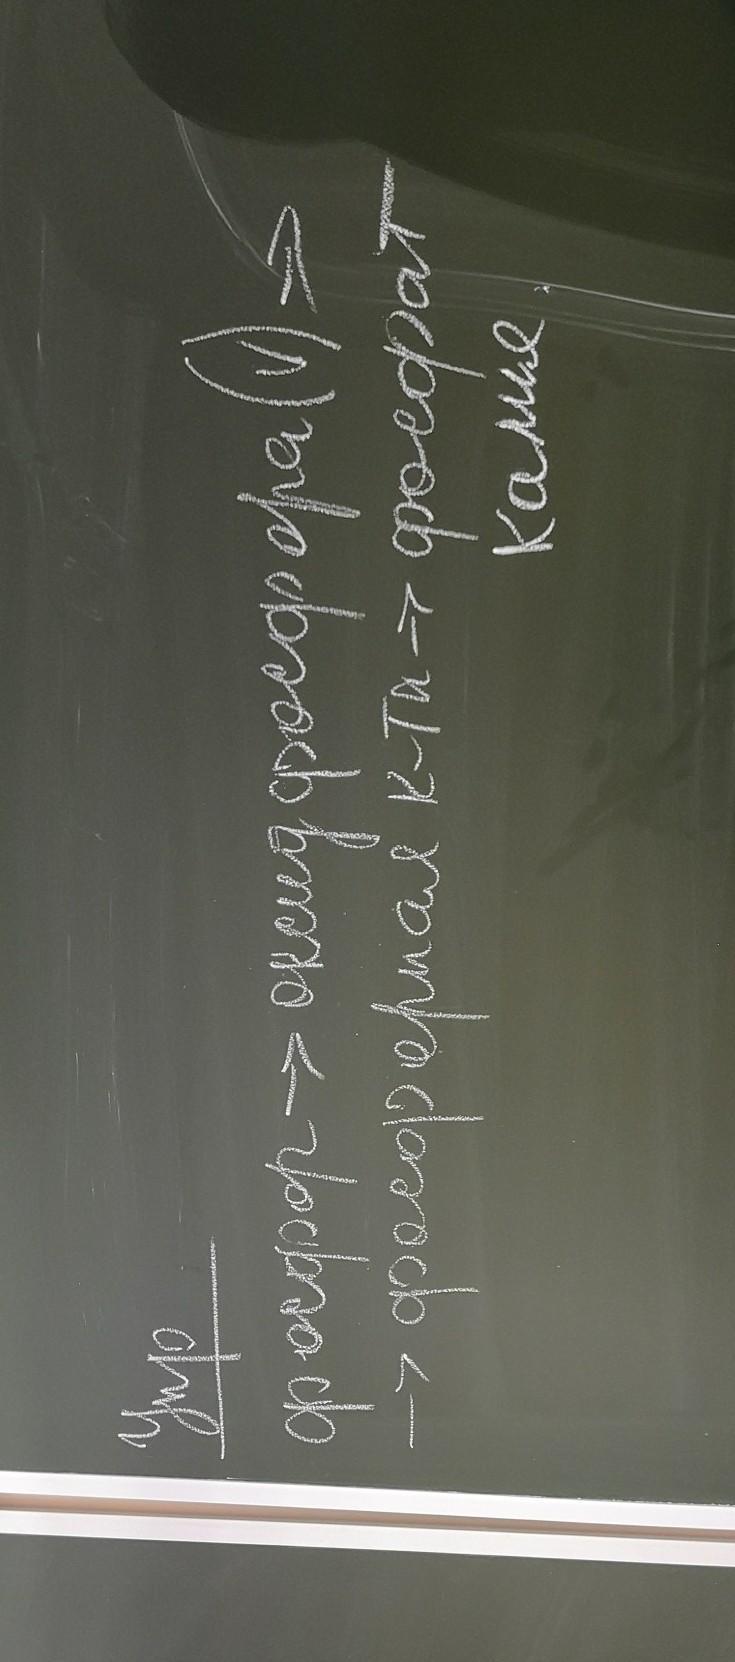 Упр
фосфор → оксид фосфора (V) →
→ фосфорная к-та → фосфат
калия.